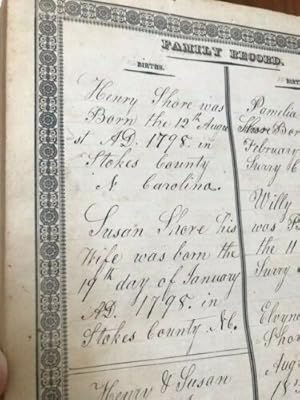 FAMILY RECORD.
BIRTHS.
Henry Shore was
Born the 12th Augu
st AD. 1798. in
Stokes County
N Carolina.
Susan Shore his
Wife was born the
19th day of January
AD. 1798. in
Stokes County NC.
Henry & Susan
BIRT
Pamelia
Shore Bor
February
Surry C
Willy
was B
the 11
Surry
Shor
Augu